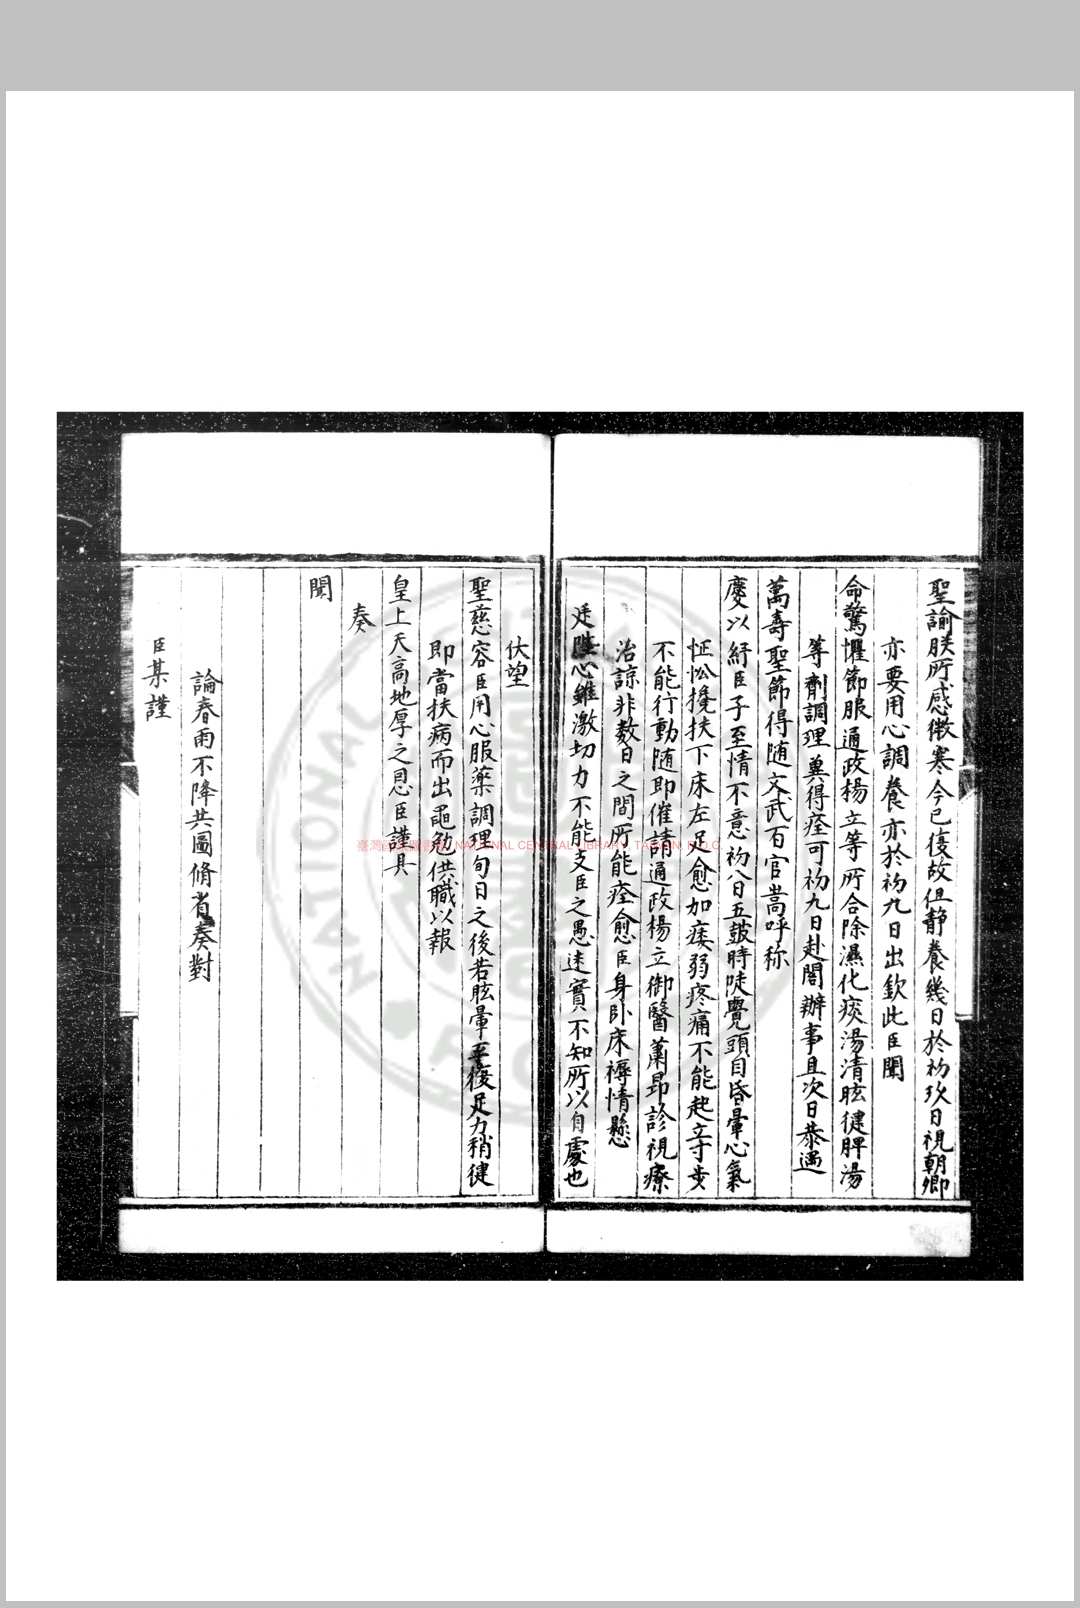 聖諭朕所感微寒今已復故但靜養幾日於初玖日視朝卿
亦要用心調養亦於初九日出欽此臣聞
命驚懼節服通政楊立等所合除濕化痰湯清眩健脾湯
等劑調理冀得痊可初九日赴閣辦事且次日恭遇
萬壽聖節得随文武百官嵩呼称
慶以紓臣子至情不意初八日五鼓時陡覺頭目昏暈心氣
怔忪攙扶下床左足愈加痿弱疼痛不能起立寸步
不能行動随即催請通政楊立御醫蕭昂診視療
治諒非数日之間所能痊愈臣身卧床褥情懸
廷陛心雖激切力不能支臣之愚迷實不知所以自處也
伏望
聖慈容臣用心服藥調理旬日之後若眩暈平復足力稍健
即當扶病而出黽勉供職以報
皇上天高地厚之恩臣謹具
奏
聞
論春雨不降共圖脩省奏對
臣某謹
臺灣 NATIONAL CENTRAL LIBRARY, TAIWAN, R.O.C.